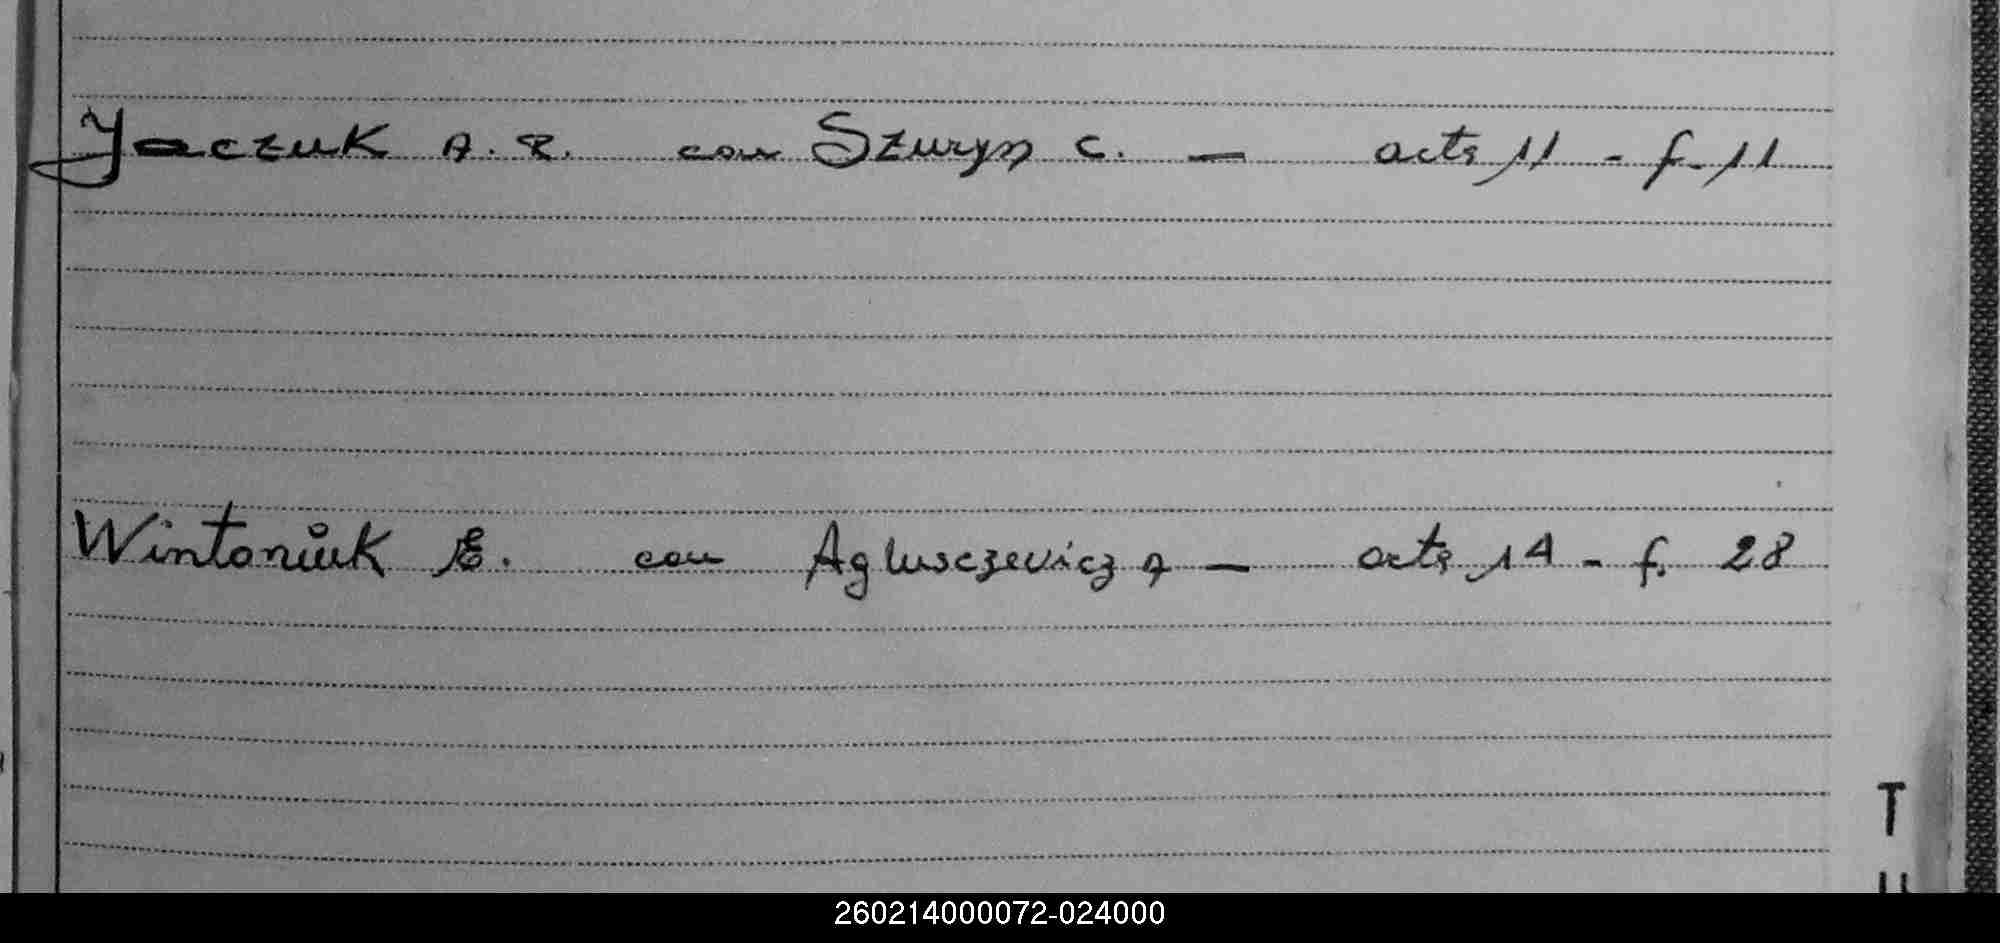 Jaczuk A. R. con Szuryn C. — acta 11 - f. 11
Wintoniuk E. con Agluszevicz A — acta 14 - f. 28
T
260214000072-024000